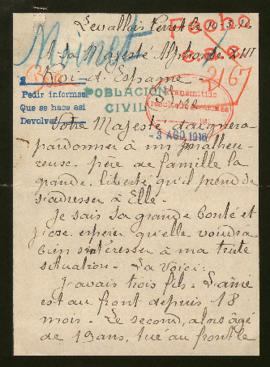 Levallois Perret le
Fecha
Sa Majesté Alphonse XIII
Roi d'Espagne
3167
Pedir informes
Que se hace así
Devolver
POBLACION
CIVIL
3 AGO 1916
Votre Majesté daignera
pardonner à un malheu-
reuse père de famille la
grande liberté qu'il prend de
s'adresser à Elle.
Je sais Sa grande bonté et
j'ose espérer qu'elle voudra
bien s'intéresser à ma triste
situation. La voici:
J'avais trois fils. L'aîné
est au front depuis 18
mois. Le second, alors âgé
de 19 ans, tué au front le